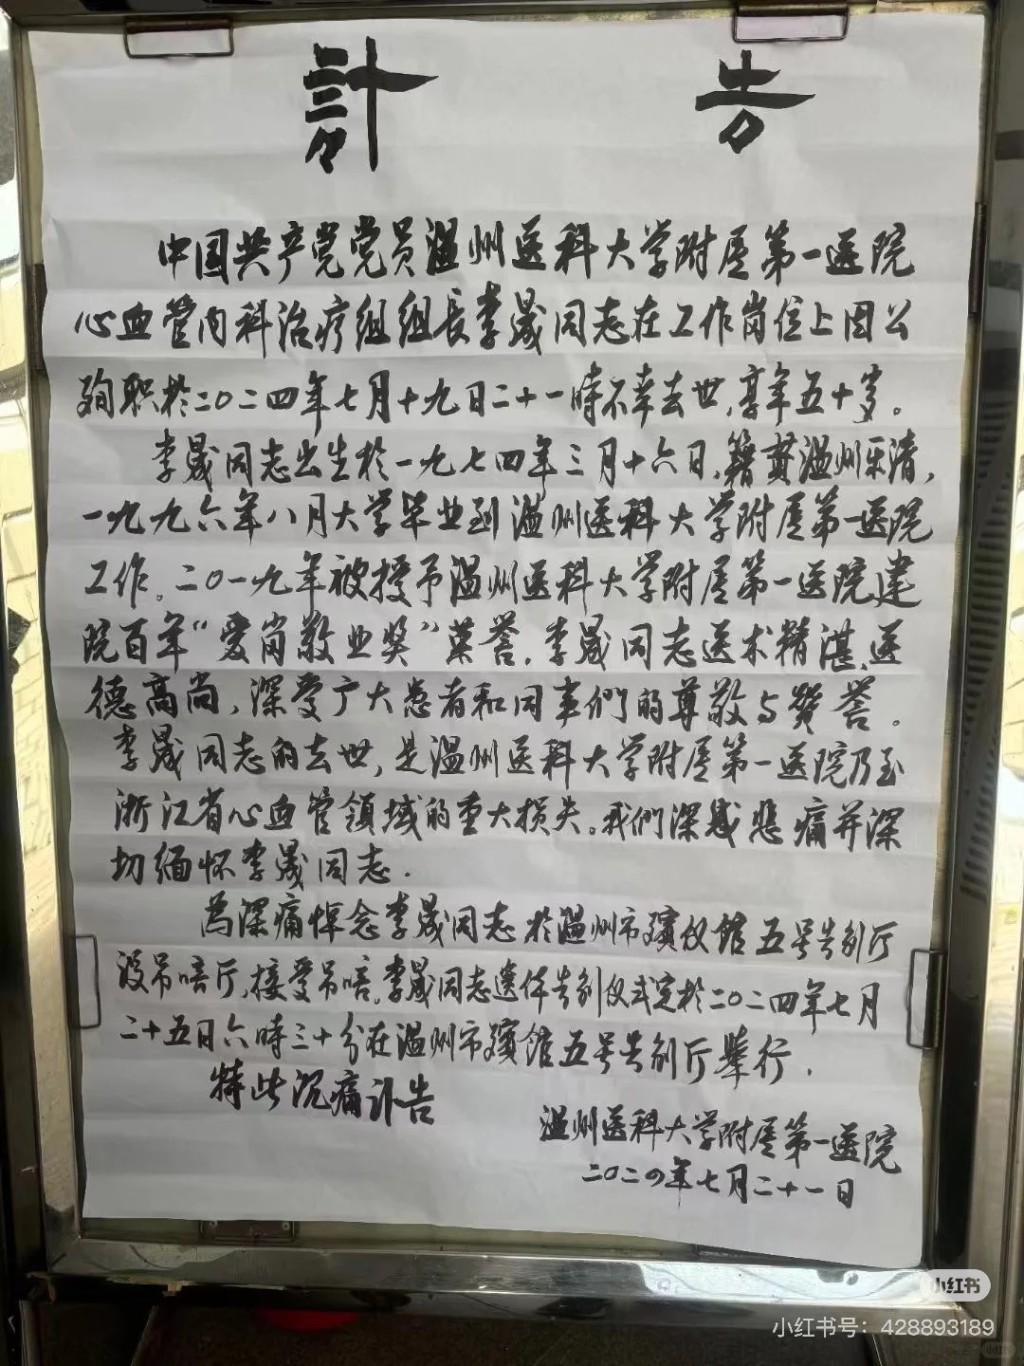 訃告
中国共产党党员温州医科大学附属第一医院
心血管内科治疗组组长李晟同志在工作岗位上因公
殉职於二〇二四年七月十九日二十一時不幸去世,享年五十岁。
李晟同志出生於一九七四年三月十六日,籍贯温州乐清,
一九九六年八月大学毕业到温州医科大学附属第一医院
工作。二〇一九年被授予温州医科大学附属第一医院建
院百年“爱岗敬业奖”荣誉,李晟同志医术精湛,医
德高尚,深受广大患者和同事們的尊敬与赞誉。
李晟同志的去世,是温州医科大学附属第一医院乃至
浙江省心血管領域的重大損失。我們深感悲痛并深
切缅怀李晟同志.
為深痛悼念李晟同志於温州市殯仪館五号告别厅
設吊唁厅,接受吊唁,李晟同志遗体告别仪式定於二〇二四年七月
二十五日六時三十分在温州市殯館五号告别厅舉行.
特此沉痛讣告
温州医科大学附属第一医院
二〇二四年七月二十一日
小红书
小红书号：428893189